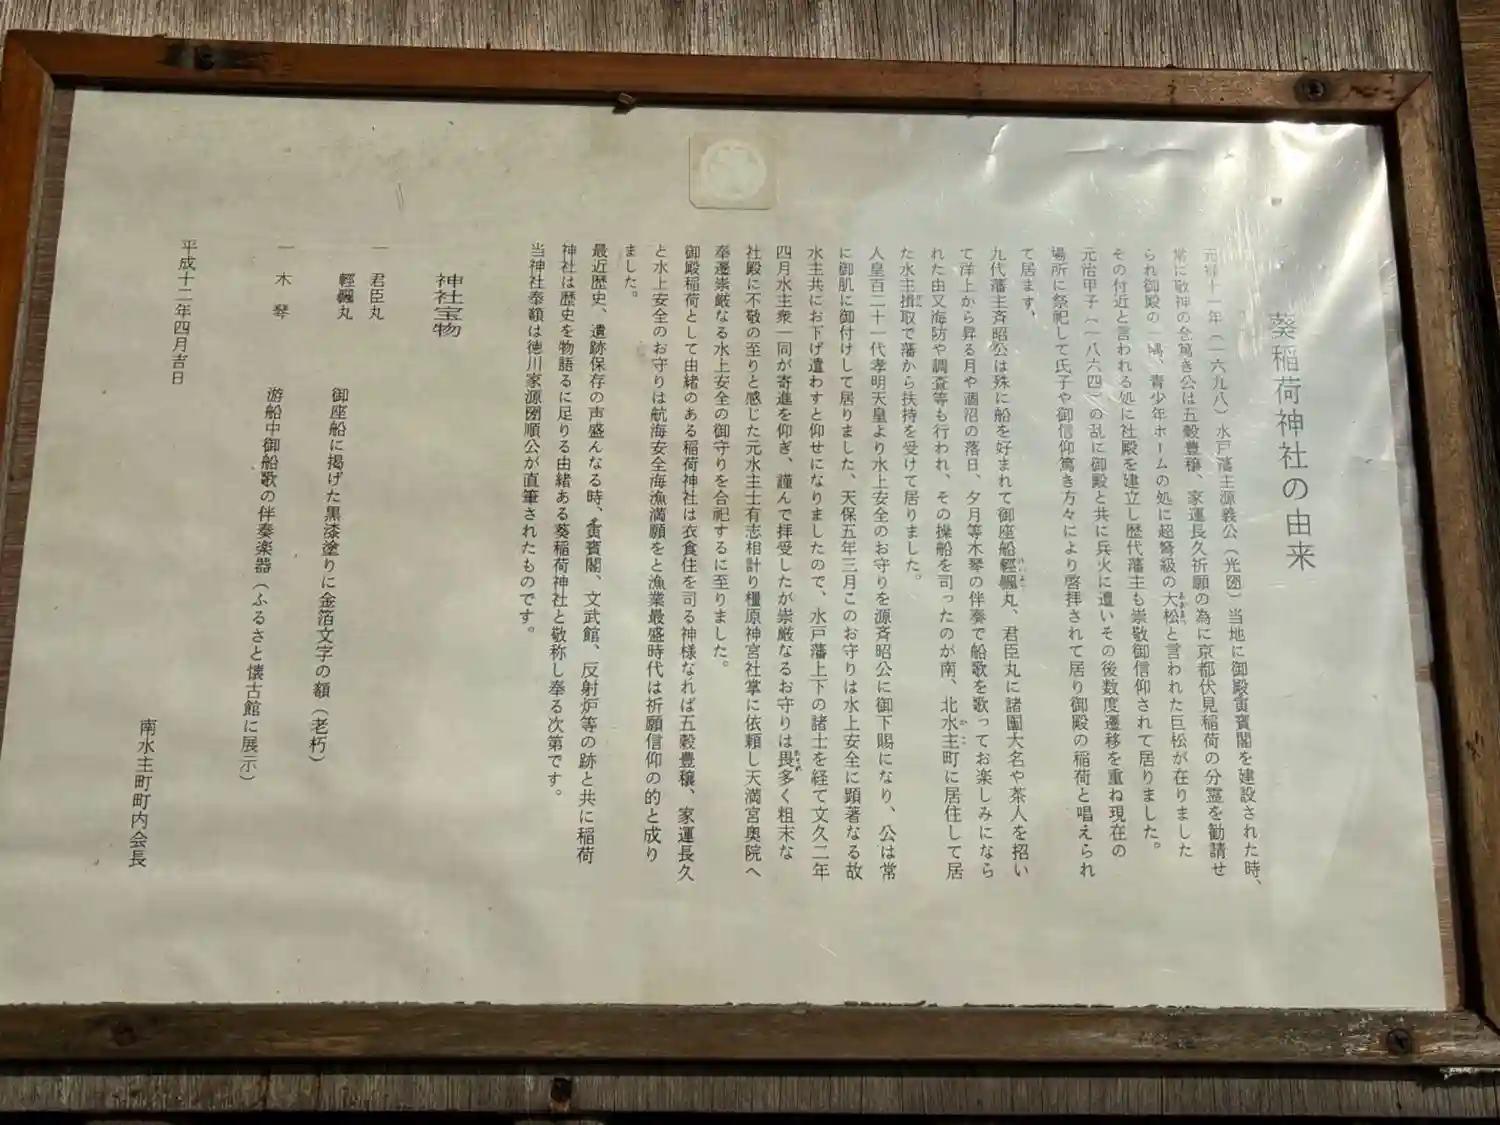 葵稲荷神社の由来
元禄十一年（一六九八）水戸藩主源義公（光圀）当地に御殿夤賓閣を建設された時、
常に敬神の念篤き公は五穀豊穣、家運長久祈願の為に京都伏見稲荷の分霊を勧請せ
られ御殿の一隅、青少年ホームの処に超弩級の大松と言われた巨松が在りました
その付近と言われる処に社殿を建立し歴代藩主も崇敬御信仰されて居りました。
元治甲子（一八六四）の乱に御殿と共に兵火に遭いその後数度遷移を重ね現在の
場所に祭祀して氏子や御信仰篤き方々により啓拝されて居り御殿の稲荷と唱えられ
て居ます。
九代藩主斉昭公は殊に船を好まれて御座船輕颿丸、君臣丸に諸国大名や茶人を招い
て洋上から昇る月や涸沼の落日、夕月等木琴の伴奏で船歌を歌ってお楽しみになら
れた由又海防や調査等も行われ、その操船を司ったのが南、北水主町に居住して居
た水主揖取で藩から扶持を受けて居りました。
人皇百二十一代孝明天皇より水上安全のお守りを源斉昭公に御下賜になり、公は常
に御肌に御付けして居りました、天保五年三月このお守りは水上安全に顕著なる故
水主共にお下げ遣わすと仰せになりましたので、水戸藩上下の諸士を経て文久二年
四月水主衆一同が寄進を仰ぎ、謹んで拝受したが崇厳なるお守りは畏多く粗末な
社殿に不敬の至りと感じた元水主士有志相計り橿原神宮社掌に依頼し天満宮奥院へ
奉遷崇厳なる水上安全の御守りを合祀するに至りました。
御殿稲荷として由緒のある稲荷神社は衣食住を司る神様なれば五穀豊穣、家運長久
と水上安全のお守りは航海安全海漁満願をと漁業最盛時代は祈願信仰の的と成り
ました。
最近歴史、遺跡保存の声盛んなる時、夤賓閣、文武館、反射炉等の跡と共に稲荷
神社は歴史を物語るに足りる由緒ある葵稲荷神社と敬称し奉る次第です。
当神社奉額は徳川家源圀順公が直筆されたものです。
神社宝物
一 君臣丸
輕颿丸 御座船に掲げた黒漆塗りに金箔文字の額（老朽）
一 木 琴 游船中御船歌の伴奏楽器（ふるさと懐古館に展示）
平成十二年四月吉日
南水主町町内会長